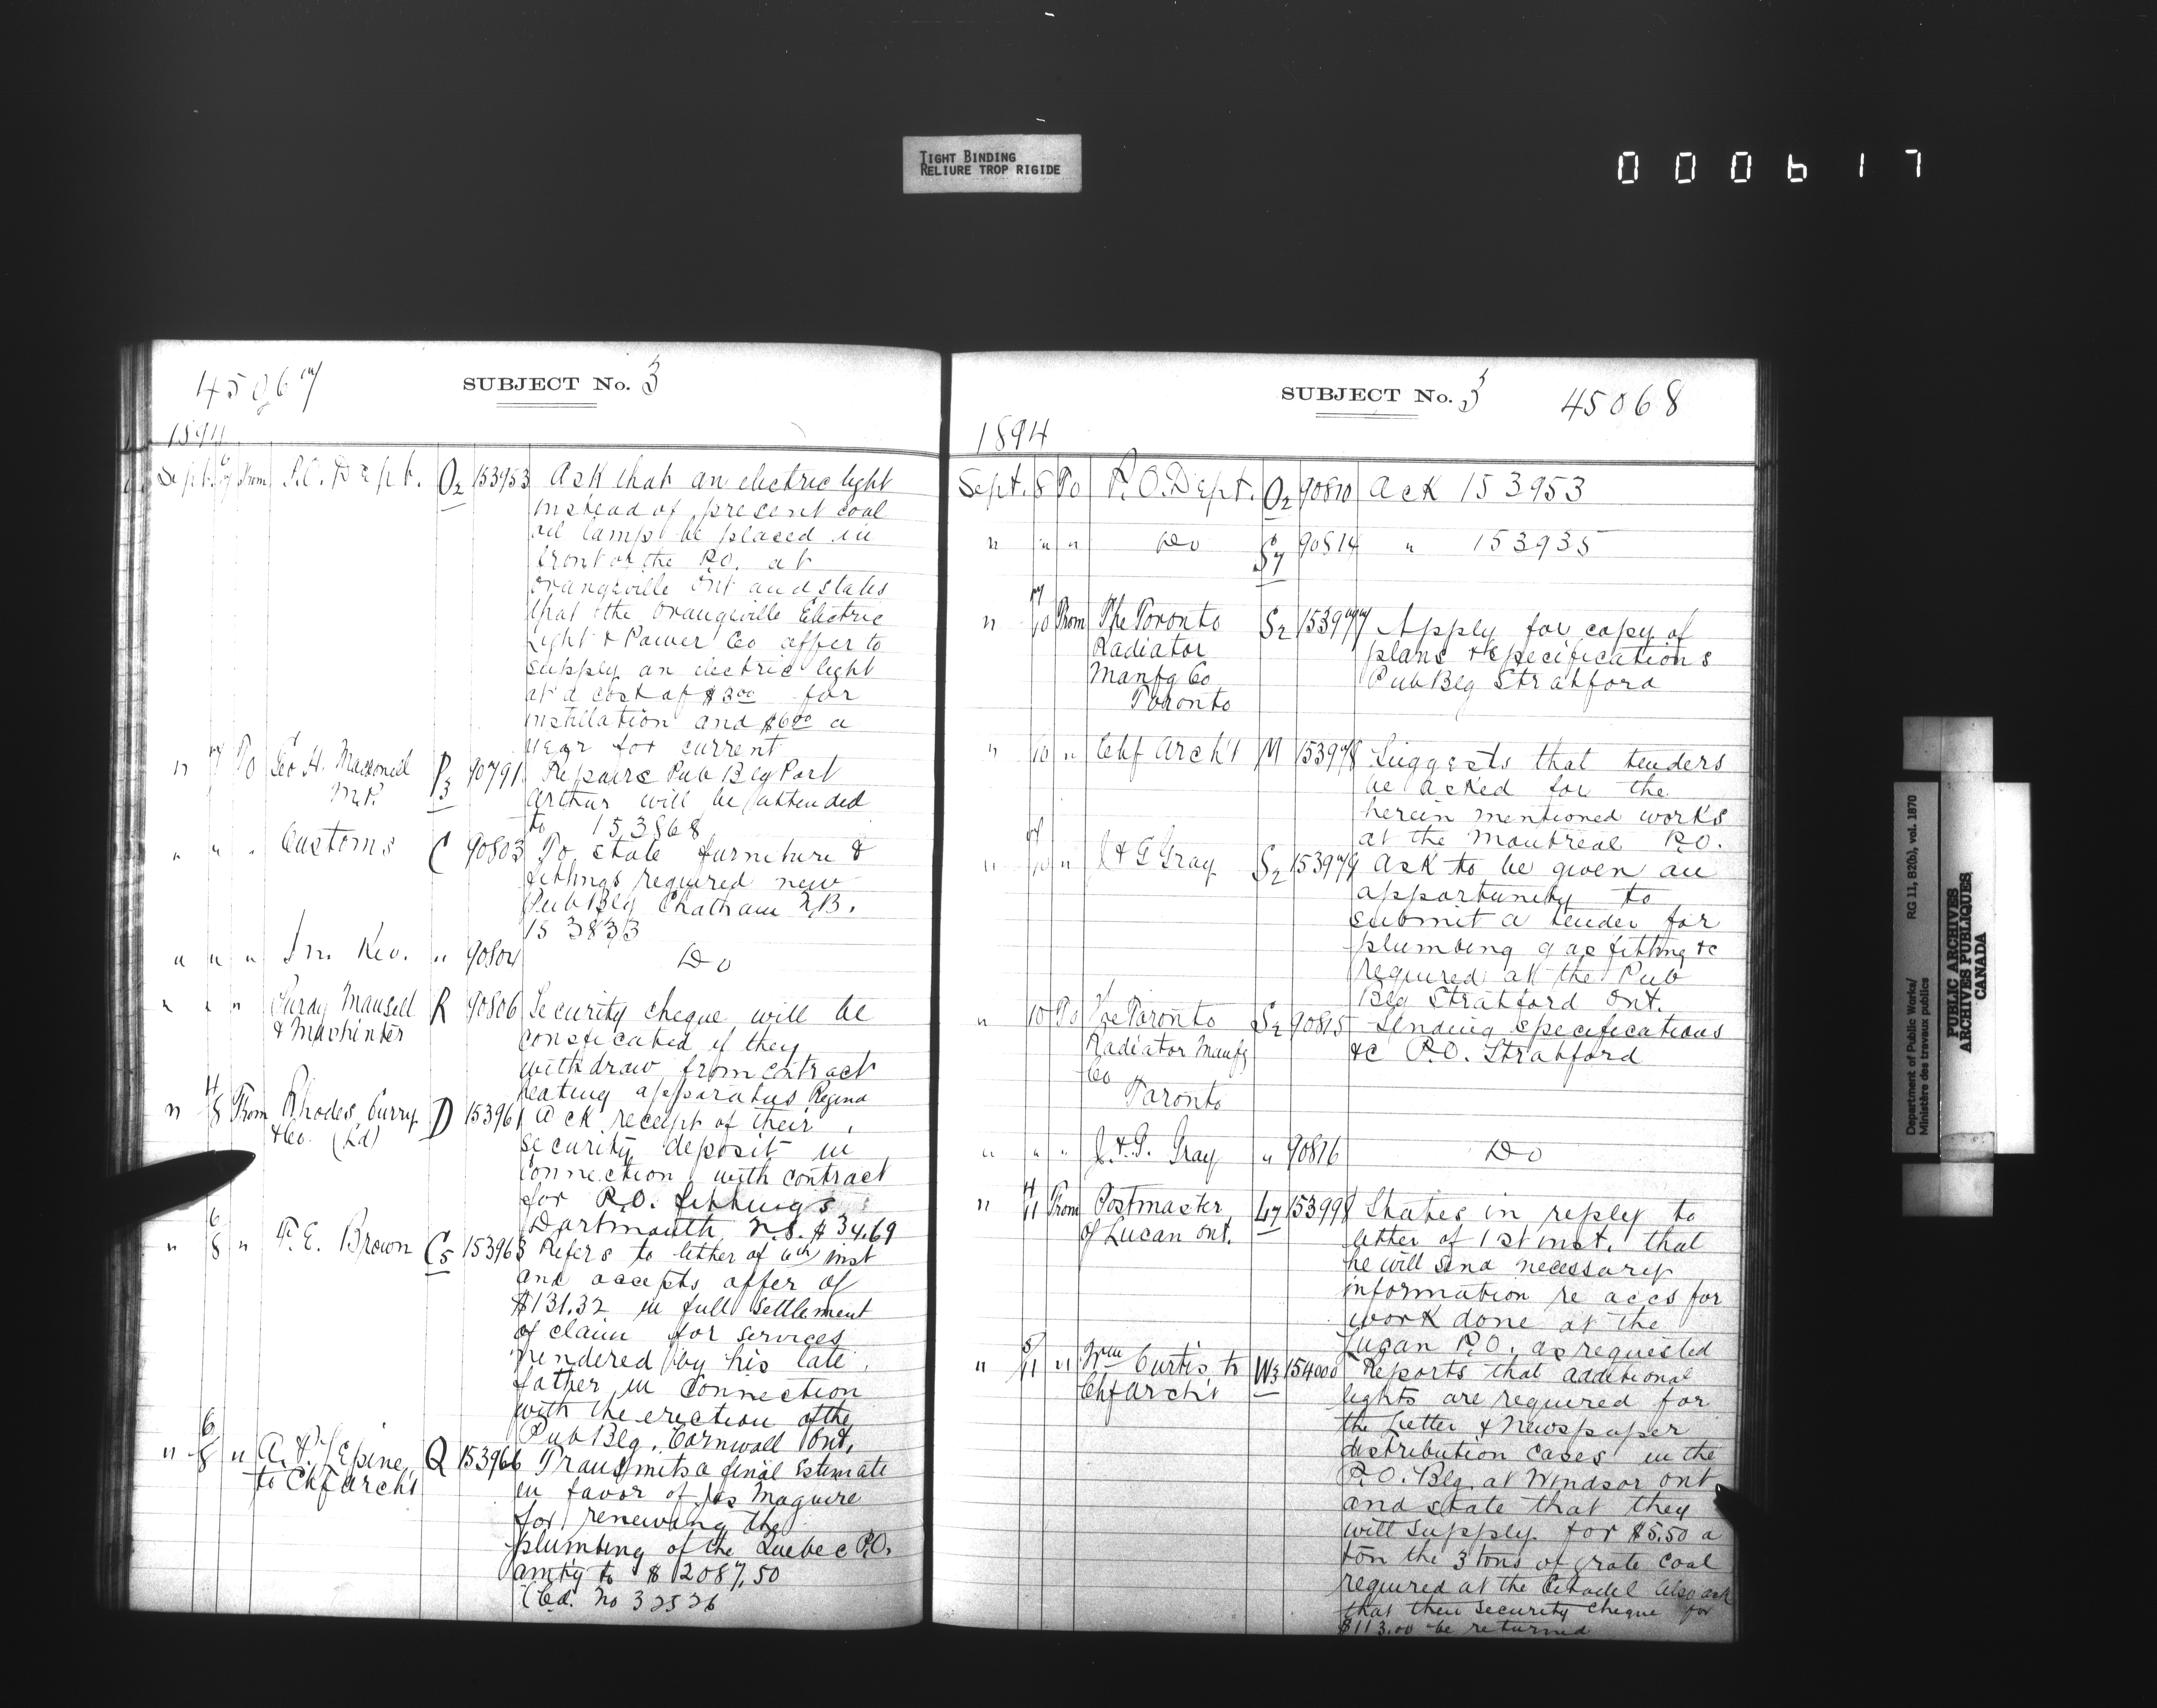 TIGHT BINDING
RELIURE TROP RIGIDE
000617
45067
SUBJECT No. 3
1894
Sept. 6 7 From P.O. Dept. O2 153953 Ask that an electric light
instead of present coal
oil lamp be placed in
front of the P.O. at
Orangeville Ont and states
that the Orangeville Electric
Light & Power Co offer to
supply an electric light
at a cost of $3.00 for
instillation and $6.00 a
year for current
" 7 To Geo. H. Macdonell P3 90791 Repairs Pub Blg Port
M.P. Arthur will be attended
to 153868
" " " Customs C 90803 To state furniture &
fittings required new
Pub Blg Chatham N.B.
153833
" " " In. Rev. " 90804 Do
" " " Purdy Mansell R 90806 Security cheque will be
& Mashinter confiscated if they
withdraw from contract
heating apparatus Regina
" 4 8 From Rhodes, Curry D 153961 Ack receipt of their
& Co. (Ld) security deposit in
connection with contract
for P.O. fittings
Dartmouth N.S. $34.69
" 6 8 " F. E. Brown C5 153963 Refers to letter of 4th inst
and accepts offer of
$131.32 in full settlement
of claim for services
rendered by his late
father in connection
with the erection of the
Pub Blg. Cornwall Ont.
" 6 8 " A. P. Lepine Q 153966 Transmits a final Estimate
to Chf Archt in favor of Jas Maguire
for renewing the
plumbing of the Quebec P.O.
amtg to $2087.50
Cd. No 32526
SUBJECT No. 3
45068
1894
Sept. 8 To P.O. Dept. O2 90810 Ack 153953
" " " Do S7 90814 " 153935
" 7 10 From The Toronto S2 153977 Apply for copy of
Radiator plans & specifications
Manfg Co Pub Blg Stratford
Toronto
" 10 " Chf Archt M 153978 Suggests that tenders
be asked for the
herein mentioned works
at the Montreal P.O.
" 7 10 " J & G Gray S2 153979 Ask to be given an
opportunity to
submit a tender for
plumbing gas fitting &c
required at the Pub
Blg Stratford Ont.
" 10 To The Toronto S2 90815 Sending specifications
Radiator Manfg &c P.O. Stratford
Co
Toronto
" " " J. & G. Gray " 90816 Do
" 4 11 From Postmaster L7 153998 States in reply to
of Lucan Ont. letter of 1st inst. that
he will send necessary
information re accs for
work done at the
Lucan P.O. as requested
" 5 11 " Wm Curtis to W3 154000 Reports that additional
Chf Archt lights are required for
the Letter & Newspaper
distribution cases in the
P.O. Blg at Windsor Ont
and state that they
will supply for $5.50 a
ton the 3 tons of grate coal
required at the Citadel also ask
that their security cheque for
$113.00 be returned
Department of Public Works/
Ministère des travaux publics
RG 11, B2(b), vol. 1870
PUBLIC ARCHIVES
ARCHIVES PUBLIQUES
CANADA